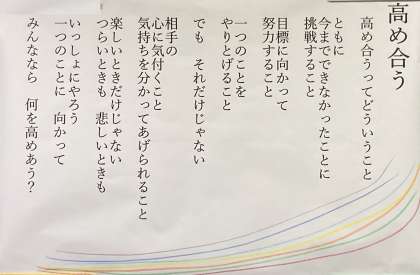 高め合う
高め合うってどういうこと
ともに
今までできなかったことに
挑戦すること
目標に向かって
努力すること
一つのことを
やりとげること
でも　それだけじゃない
相手の
心に気付くこと
気持ちを分かってあげられること
楽しいときだけじゃない
つらいときも　悲しいときも
いっしょにやろう
一つのことに　向かって
みんななら　何を高めあう？